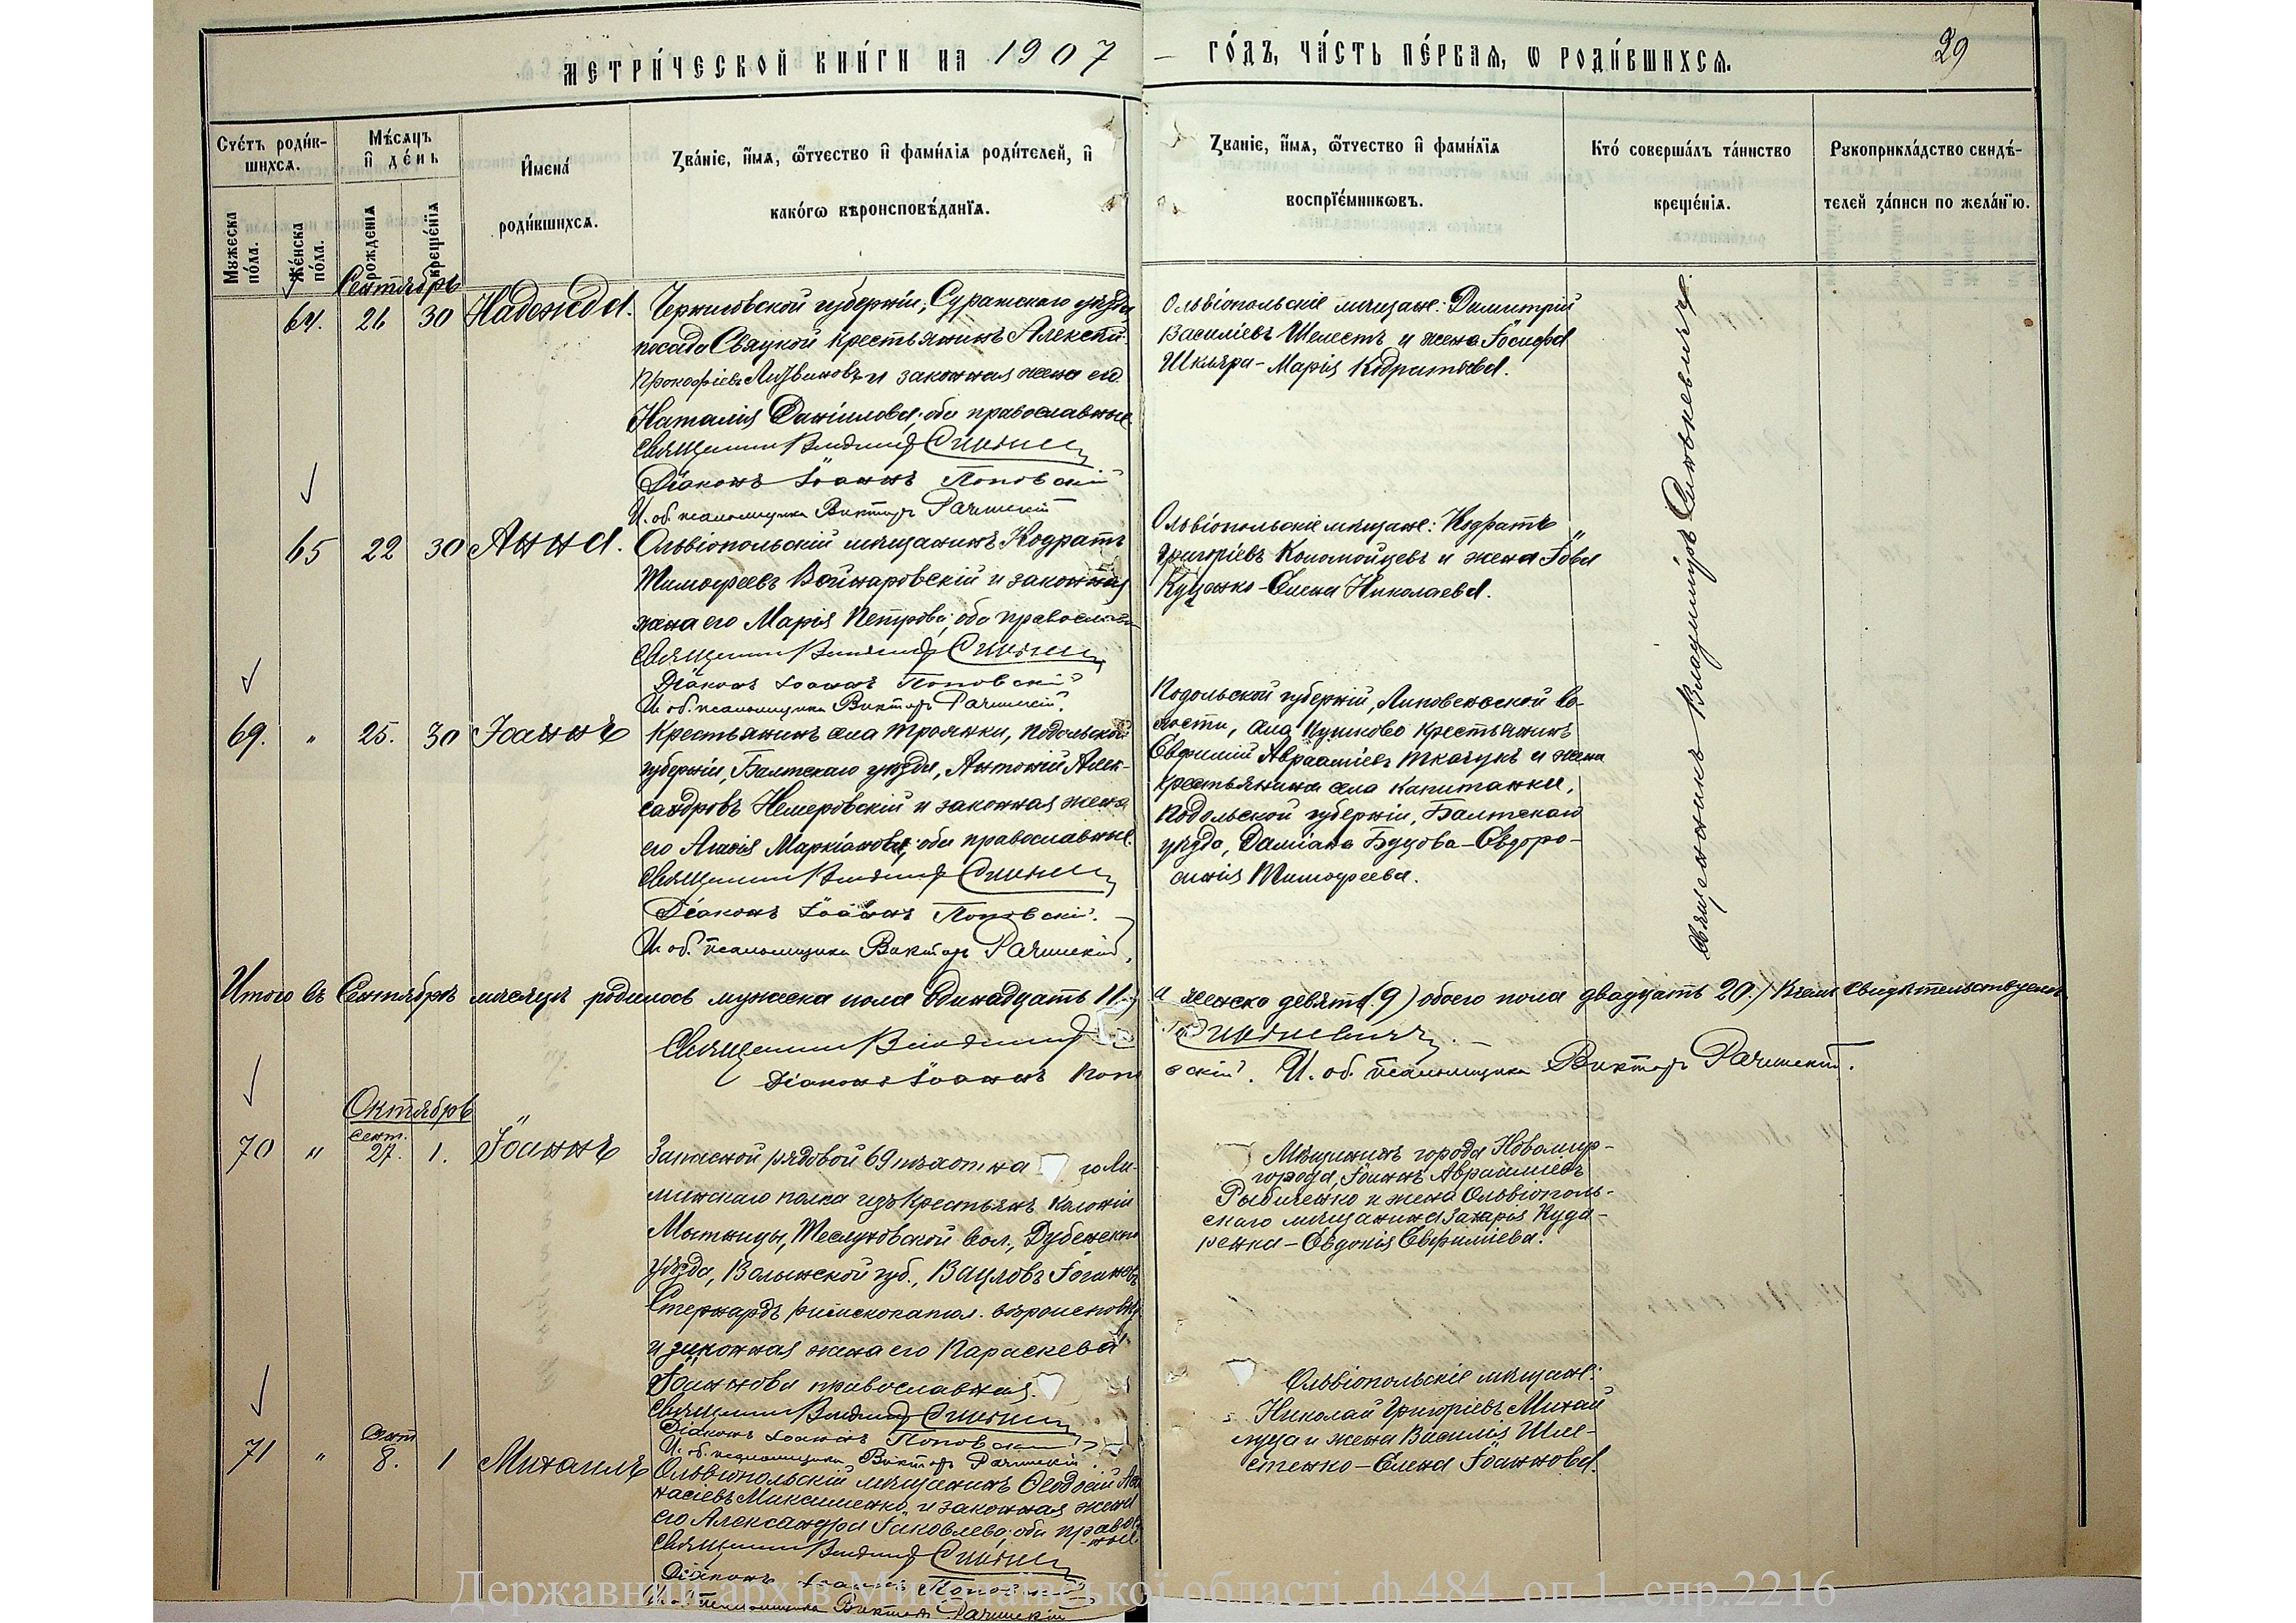 МЕТРИ́ЧЕСКОЙ КНИ́ГИ НА 1907
ГО́ДЪ, ЧА́СТЬ ПЕ́РВАѦ, Ѡ РОДИ́ВШИХСѦ.
29
Сче́тъ роди́в-
шихсѧ.
Мꙋжеска по́ла.
Же́нска по́ла.
Мѣ́сѧцъ
и҆ де́нь
рожденїѧ
креще́нїѧ
И҆мена́
роди́вшихсѧ.
Зва́нїе, и҆́мѧ, ѻ҆́тчество и҆ фами́лїѧ роди́телей, и҆
како́гѡ вѣроисповѣ́данїѧ.
Зва́нїе, и҆́мѧ, ѻ҆́тчество и҆ фами́лїѧ
воспрїе́мникѡвъ.
Кто́ соверша́лъ та́инство
креще́нїѧ.
Рꙋкоприкла́дство свидѣ́-
телей за́писи по жела́нїю.
Сентябрь
64. 26 30 Надежда.
Черниговской губерніи, Суражскаго уѣзда
посада Свяцкой крестьянинъ Алексѣй
Прокофіевъ Литвиновъ и законная жена его
Наталія Даніилова, оба православные.
Священникъ Владиміръ
Діаконъ Іоаннъ Поповскій
И. об. псаломщика Викторъ Рачинскій
Ольвіопольскіе мѣщане: Димитрій
Василіевъ Шелестъ и жена Іосифа
Шкляра - Марія Кодратьева.
65 22 30 Анна.
Ольвіопольскій мѣщанинъ Кодратъ
Тимофеевъ Войнаровскій и законная
жена его Марія Петрова; оба православные
Священникъ Владиміръ
Діаконъ Іоаннъ Поповскій
И. об. псаломщика Викторъ Рачинскій.
Ольвіопольскіе мѣщане: Кодратъ
Григоріевъ Коломойцевъ и жена Іова
Куценко - Елена Николаева.
69. " 25. 30 Іоаннъ
Крестьянинъ села Троянки, Подольской
губерніи, Балтскаго уѣзда, Антоній Алек-
сандровъ Немеровскій и законная жена
его Агафія Маркіанова, оба православные.
Священникъ Владиміръ
Діаконъ Іоаннъ Поповскій.
И. об. псаломщика Викторъ Рачинскій.
Подольской губерніи, Липовенской во-
лости, села Пушково крестьянинъ
Евфимій Авраамiевъ Ткачукъ и жена
крестьянина села Капитанки,
Подольской губерніи, Балтскаго
уѣзда, Даміана Буцова - Евфро-
синія Тимофеева.
Священникъ Владиміръ Синькевичъ.
Итого въ Сентябрѣ мѣсяцѣ родилось мужеска пола одинадцать 11. и женска девять (9) обоего пола двадцать 20.) въ чемъ свидѣтельствуемъ
Священникъ Владиміръ Синькевичъ.
Діаконъ Іоаннъ Поповскій. И. об. псаломщика Викторъ Рачинскій.
Октябрь
70 " Сент. 27. 1. Іоаннъ
Запасной рядовой 69 пѣхотна го
полка изъ крестьянъ колоніи
Мытницы, Теслуховской вол., Дубенскаго
уѣзда, Волынской губ., Вацловъ Іогановъ
римскокатол. вѣроисповѣд.
и законная жена его Параскева
Іоаннова православная.
Священникъ Владиміръ
Діаконъ Іоаннъ Поповскій
И. об. псаломщика Викторъ Рачинскій.
Мѣщанинъ города Новомир-
города, Іоаннъ Авраамiевъ
Рыбиченко и жена Ольвіополь-
скаго мѣщанина Захарія Куда-
ренка - Евдокія Евфиміева.
71 " Сент 8. 1 Михаилъ
Ольвіопольскій мѣщанинъ Ѳеодосій Аѳа-
насіевъ Максименко и законная жена
его Александра Іаковлева; оба православ-
ные.
Священникъ Владиміръ
Діаконъ Іоаннъ Поповскій
И. об. псаломщика Викторъ Рачинскій
Ольвіопольскіе мѣщане:
Николай Григоріевъ Михай
луца и жена Василія Шеле-
стенко - Елена Іоаннова.
Державний архів Миколаївської області. ф.484. оп.1. спр.2216